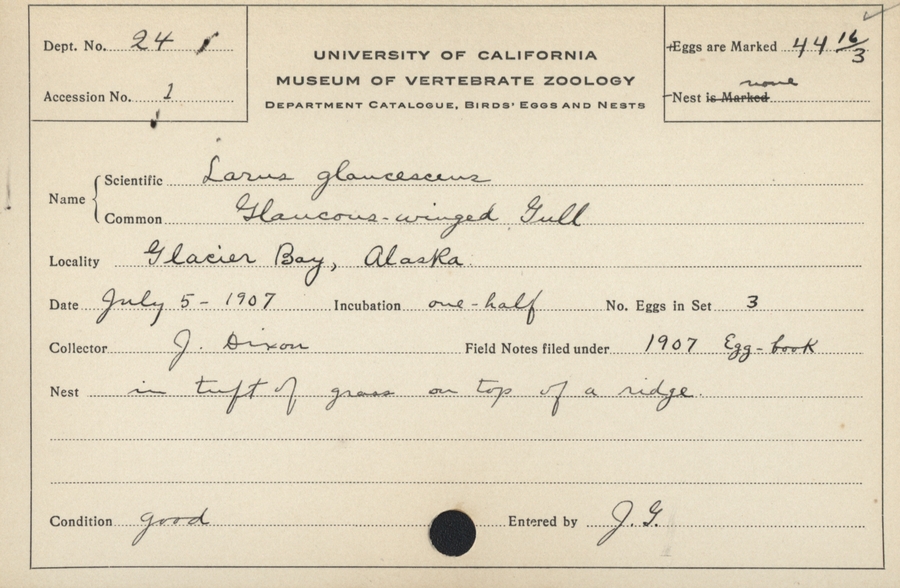 Dept. No. 24
UNIVERSITY OF CALIFORNIA
MUSEUM OF VERTEBRATE ZOOLOGY
DEPARTMENT CATALOGUE, BIRDS' EGGS AND NESTS
Eggs are Marked 44 16/3
Accession No. 1
none
Nest is Marked
Name
Scientific Larus glaucescens
Common Glaucous-winged Gull
Locality Glacier Bay, Alaska
Date July 5 - 1907 Incubation one-half No. Eggs in Set 3
Collector J. Dixon Field Notes filed under 1907 Egg-book
Nest in tuft of grass on top of a ridge.
Condition good Entered by J. G.